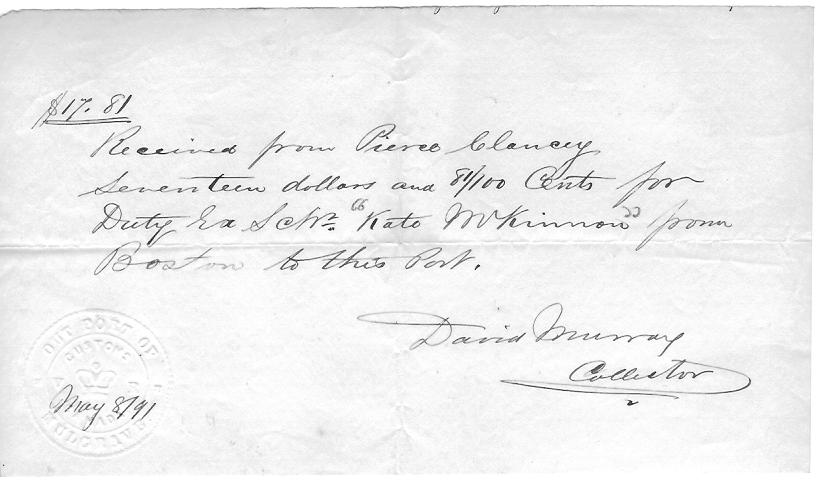 $17.81
Received from Pierce Clancey
Seventeen dollars and 81/100 Cents for
Duty Ex Schr. "Kate McKinnon" from
Boston to this Port.
David Murray
Collector
OUT PORT OF
CUSTOMS
May 8/91
MULGRAVE